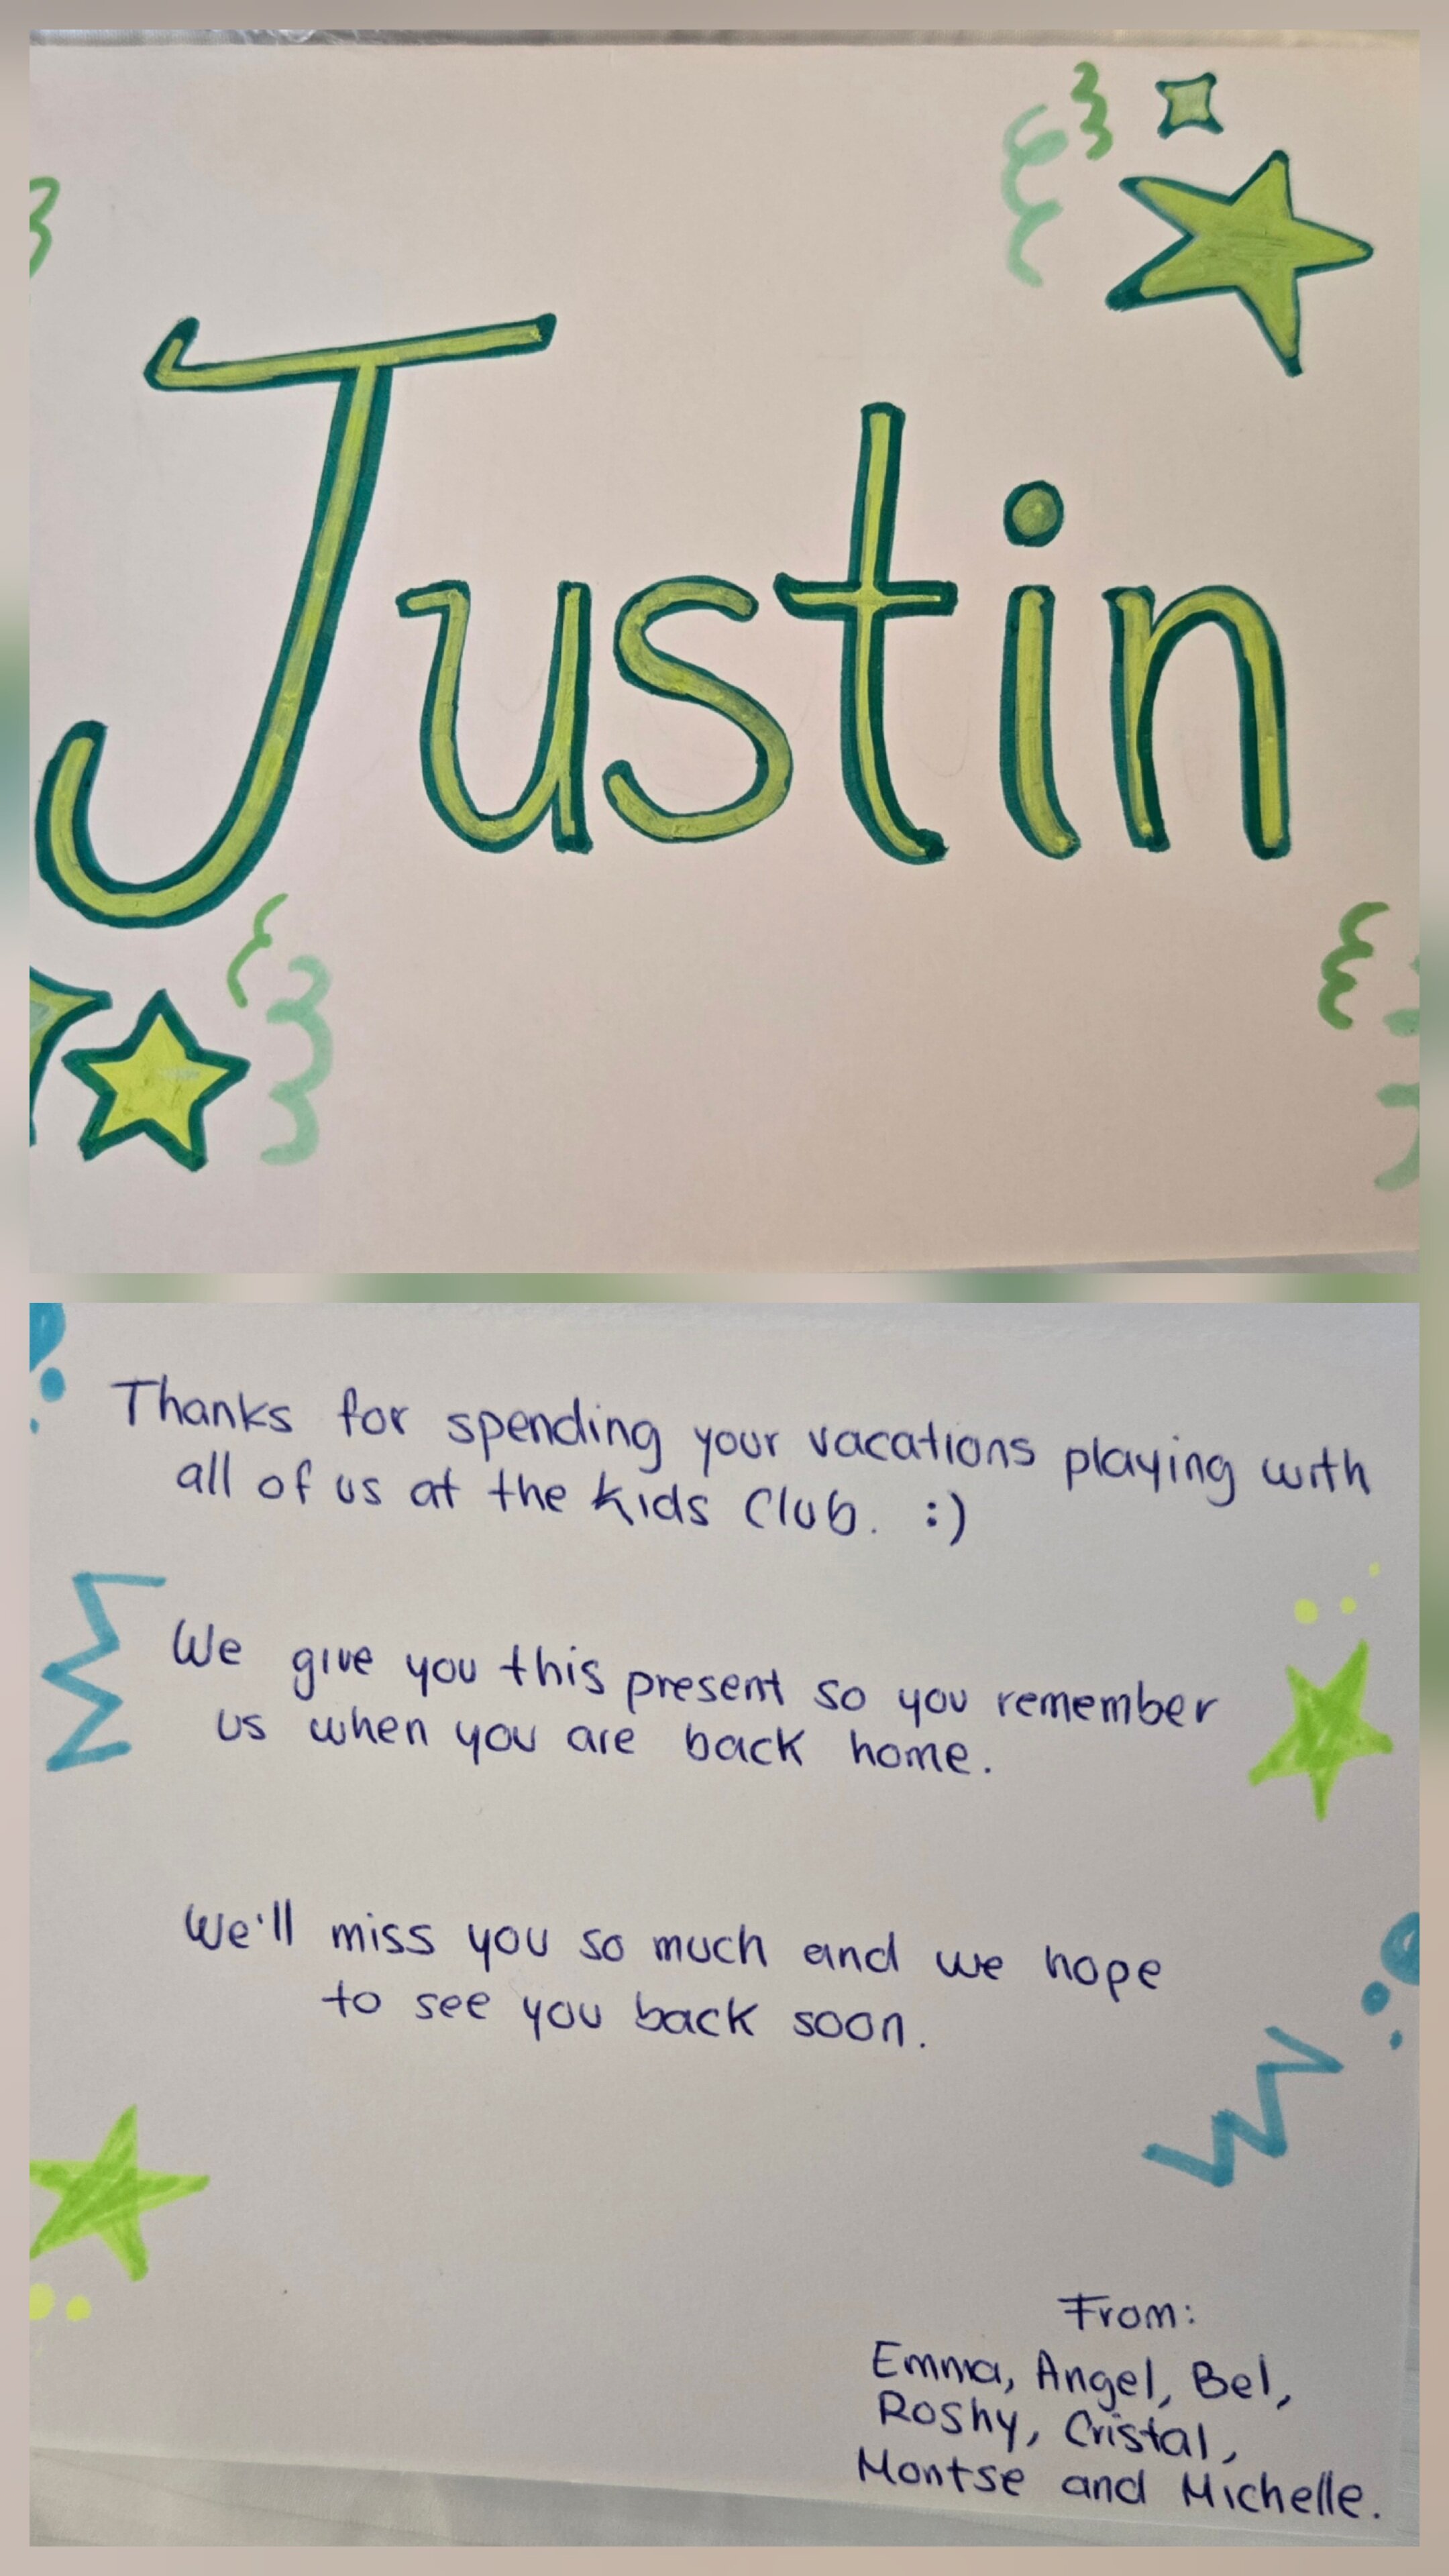 Justin
Thanks for spending your vacations playing with
all of us at the Kids Club. :)
We give you this present so you remember
us when you are back home.
We'll miss you so much and we hope
to see you back soon.
From:
Emma, Angel, Bel,
Roshy, Cristal,
Montse and Michelle.